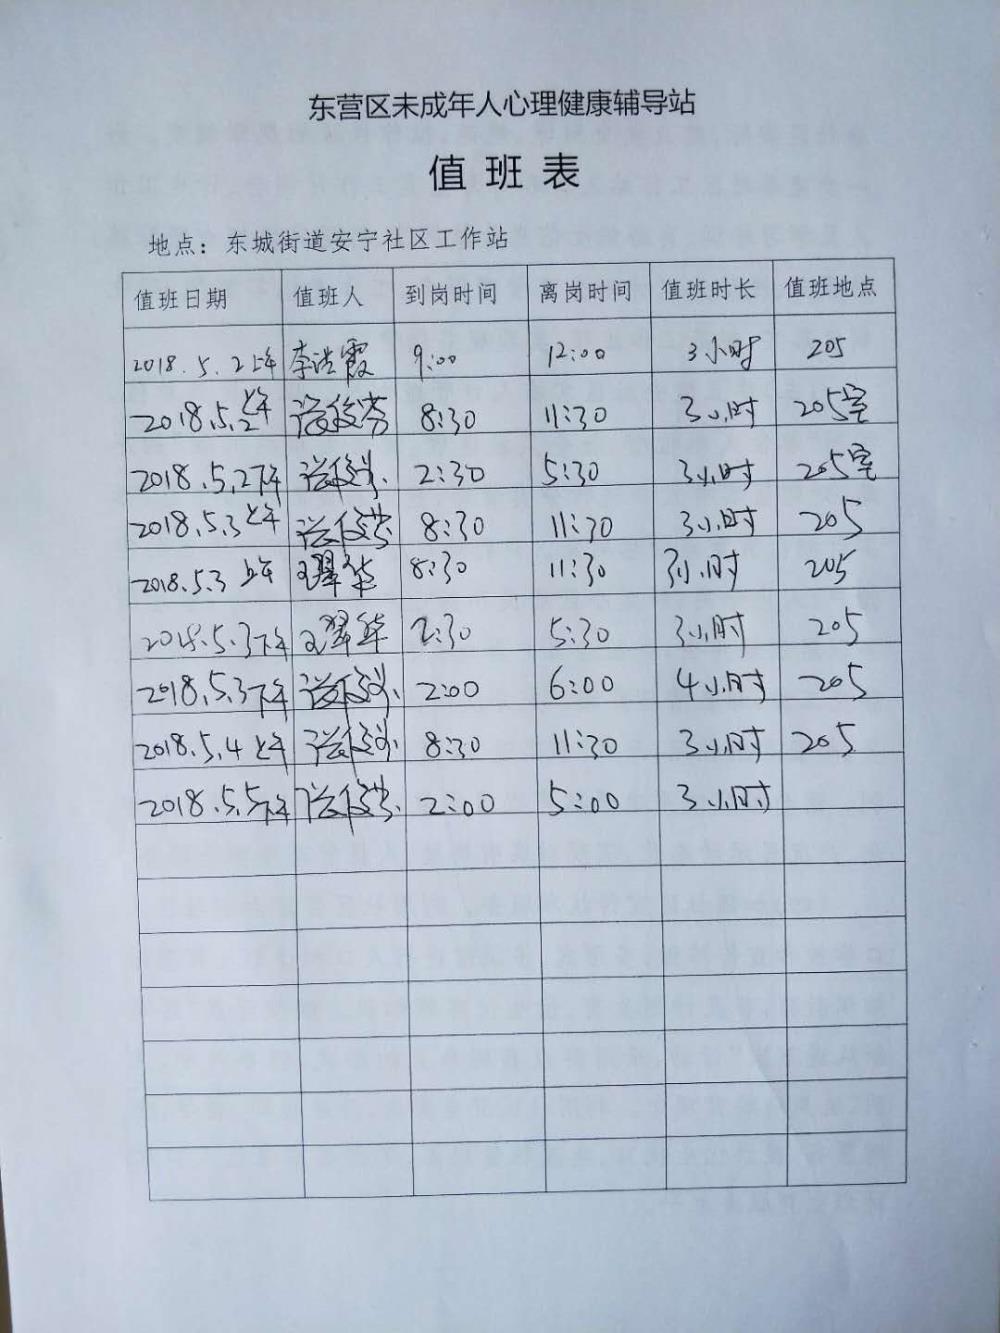 东营区未成年人心理健康辅导站
值班表
地点：东城街道安宁社区工作站
值班日期 值班人 到岗时间 离岗时间 值班时长 值班地点
2018.5.2上午 李洪霞 9:00 12:00 3小时 205
2018.5.2上午 8:30 11:30 3小时 205室
2018.5.2下午 2:30 5:30 3小时 205室
2018.5.3上午 8:30 11:30 3小时 205
2018.5.3上午 王翠华 8:30 11:30 3小时 205
2018.5.3下午 王翠华 2:30 5:30 3小时 205
2018.5.3下午 2:00 6:00 4小时 205
2018.5.4上午 8:30 11:30 3小时 205
2018.5.5下午 2:00 5:00 3小时